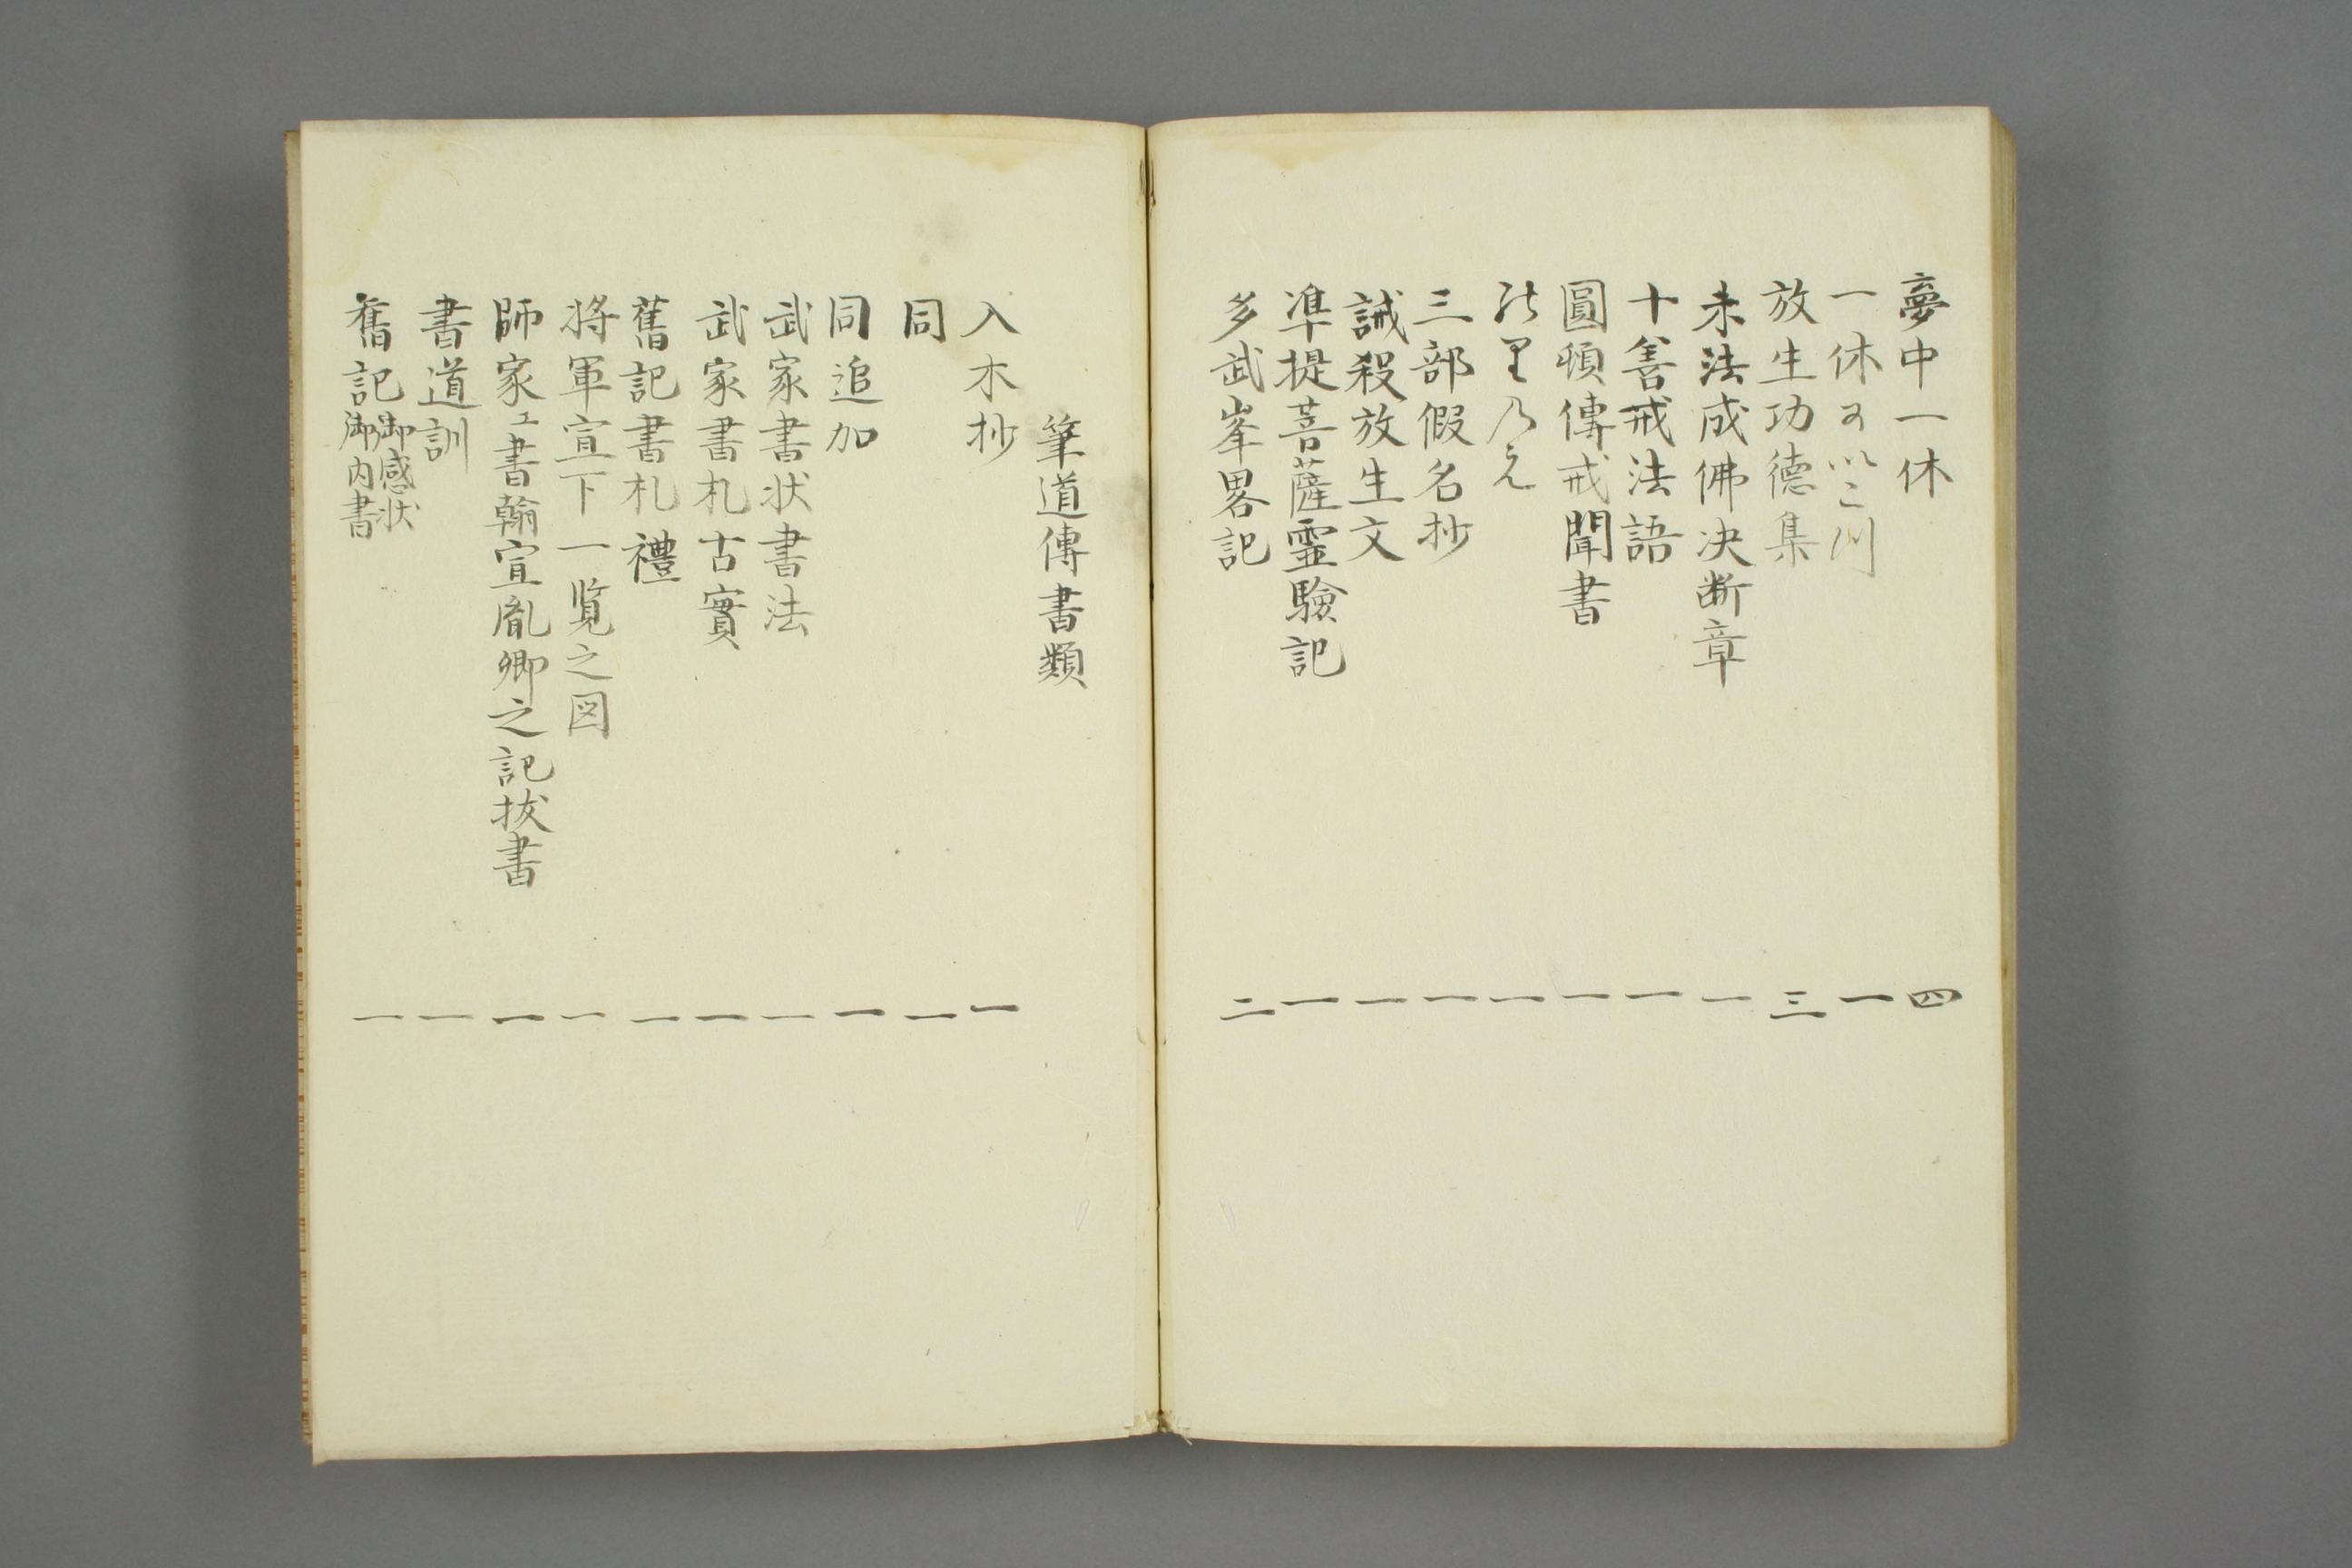 夢中一休 四
一休可以こ川 一
放生功德集 三
未法成佛决断章 一
十善戒法語 一
圓頓傳戒聞書 一
乃え 一
三部假名抄 一
誡殺放生文 一
準提菩薩霊驗記 一
多武峯畧記 二
筆道傳書類
入木抄 一
同 一
同追加 一
武家書状書法 一
武家書札古實 一
舊記書札禮 一
将軍宣下一覧之図 一
師家ヱ書翰宣胤卿之記抜書 一
書道訓 一
舊記御感状 一
御内書